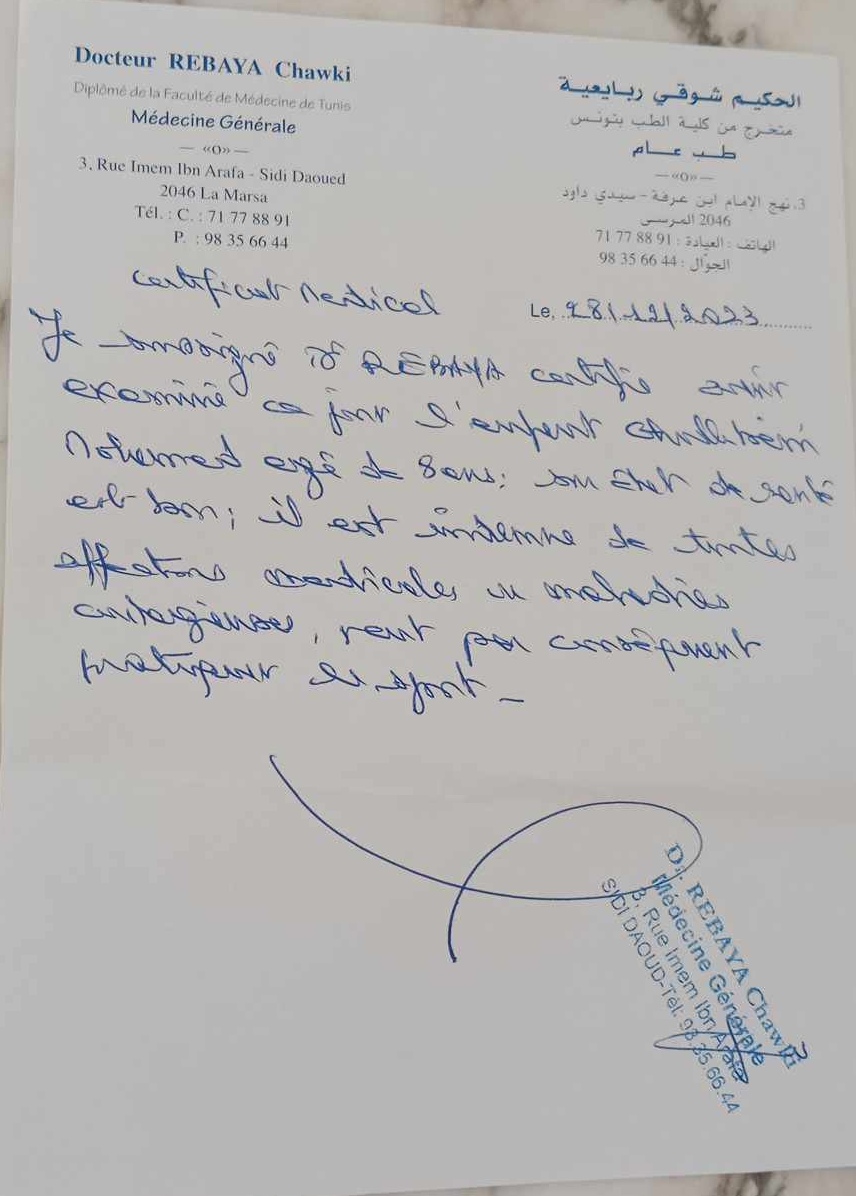 Docteur REBAYA Chawki
Diplômé de la Faculté de Médecine de Tunis
Médecine Générale
— «O» —
3, Rue Imem Ibn Arafa - Sidi Daoued
2046 La Marsa
Tél. : C. : 71 77 88 91
P. : 98 35 66 44
الحكيم شوقي ربايعية
متخرج من كلية الطب بتونس
طب عام
— «O» —
3، نهج الإمام ابن عرفة - سيدي داود
2046 المرسى
الهاتف : العيادة : 71 77 88 91
الجوّال : 98 35 66 44
Certificat Médical
Le, 28/12/2023
Je soussigné Dr REBAYA certifie avoir
examiné ce jour l'enfant
Mohamed agé de 8 ans; son état de santé
est bon; il est indemne de toutes
affections médicales ou maladies
contagieuses, peut par conséquent
pratiquer le sport _
Dr. REBAYA Chawki
Médecine Générale
3, Rue Imem Ibn Arafa
SIDI DAOUD-Tél: 98.35.66.44